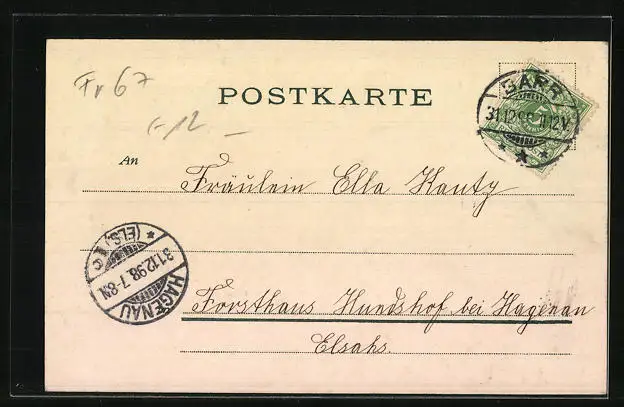 Fr 67
POSTKARTE
BARR
31.12.98 11-12V.
An
Fräulein Ella Kautz
(ELS.) 1 c
31.12.98. 7-8N
HAGENAU
Forsthaus Hundshof bei Hagenau
Elsahs.